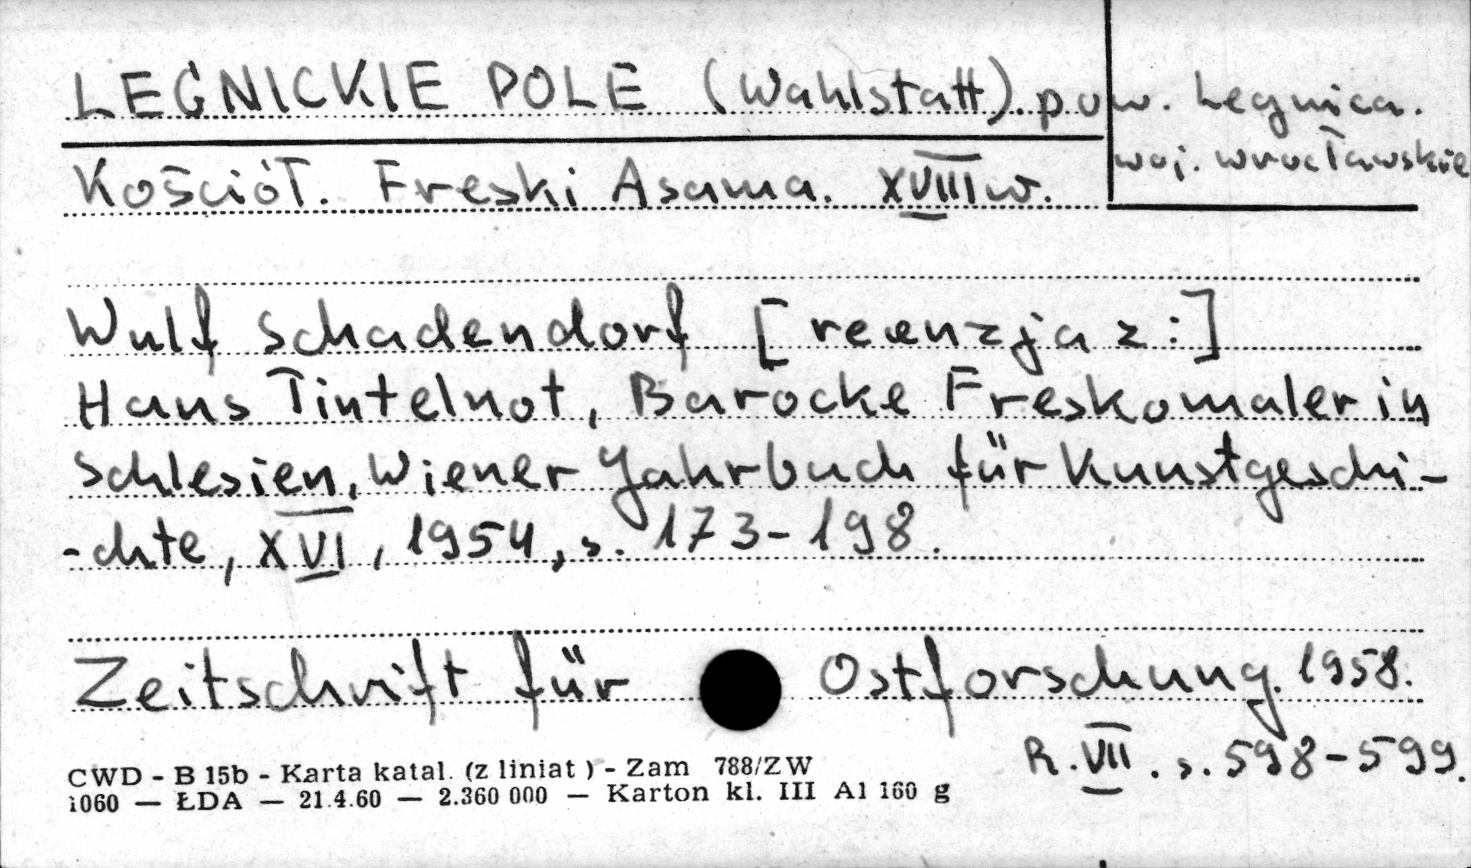 LEGNICKIE POLE (Wahlstatt). pow. Legnica.
woj. wrocławskie
Kościół. Freski Asama. XVIII w.
Wulf Schadendorf [recenzja z:]
Hans Tintelnot, Barocke Freskomaler in
Schlesien, Wiener Jahrbuch für Kunstgeschi-
-chte, XVI, 1954, s. 173-198.
Zeitschrift für Ostforschung. 1958.
R. VII. s. 598-599.
CWD - B 15b - Karta katal. (z liniat ) - Zam 788/ZW
1060 — ŁDA — 21.4.60 — 2.360 000 — Karton kl. III A1 160 g